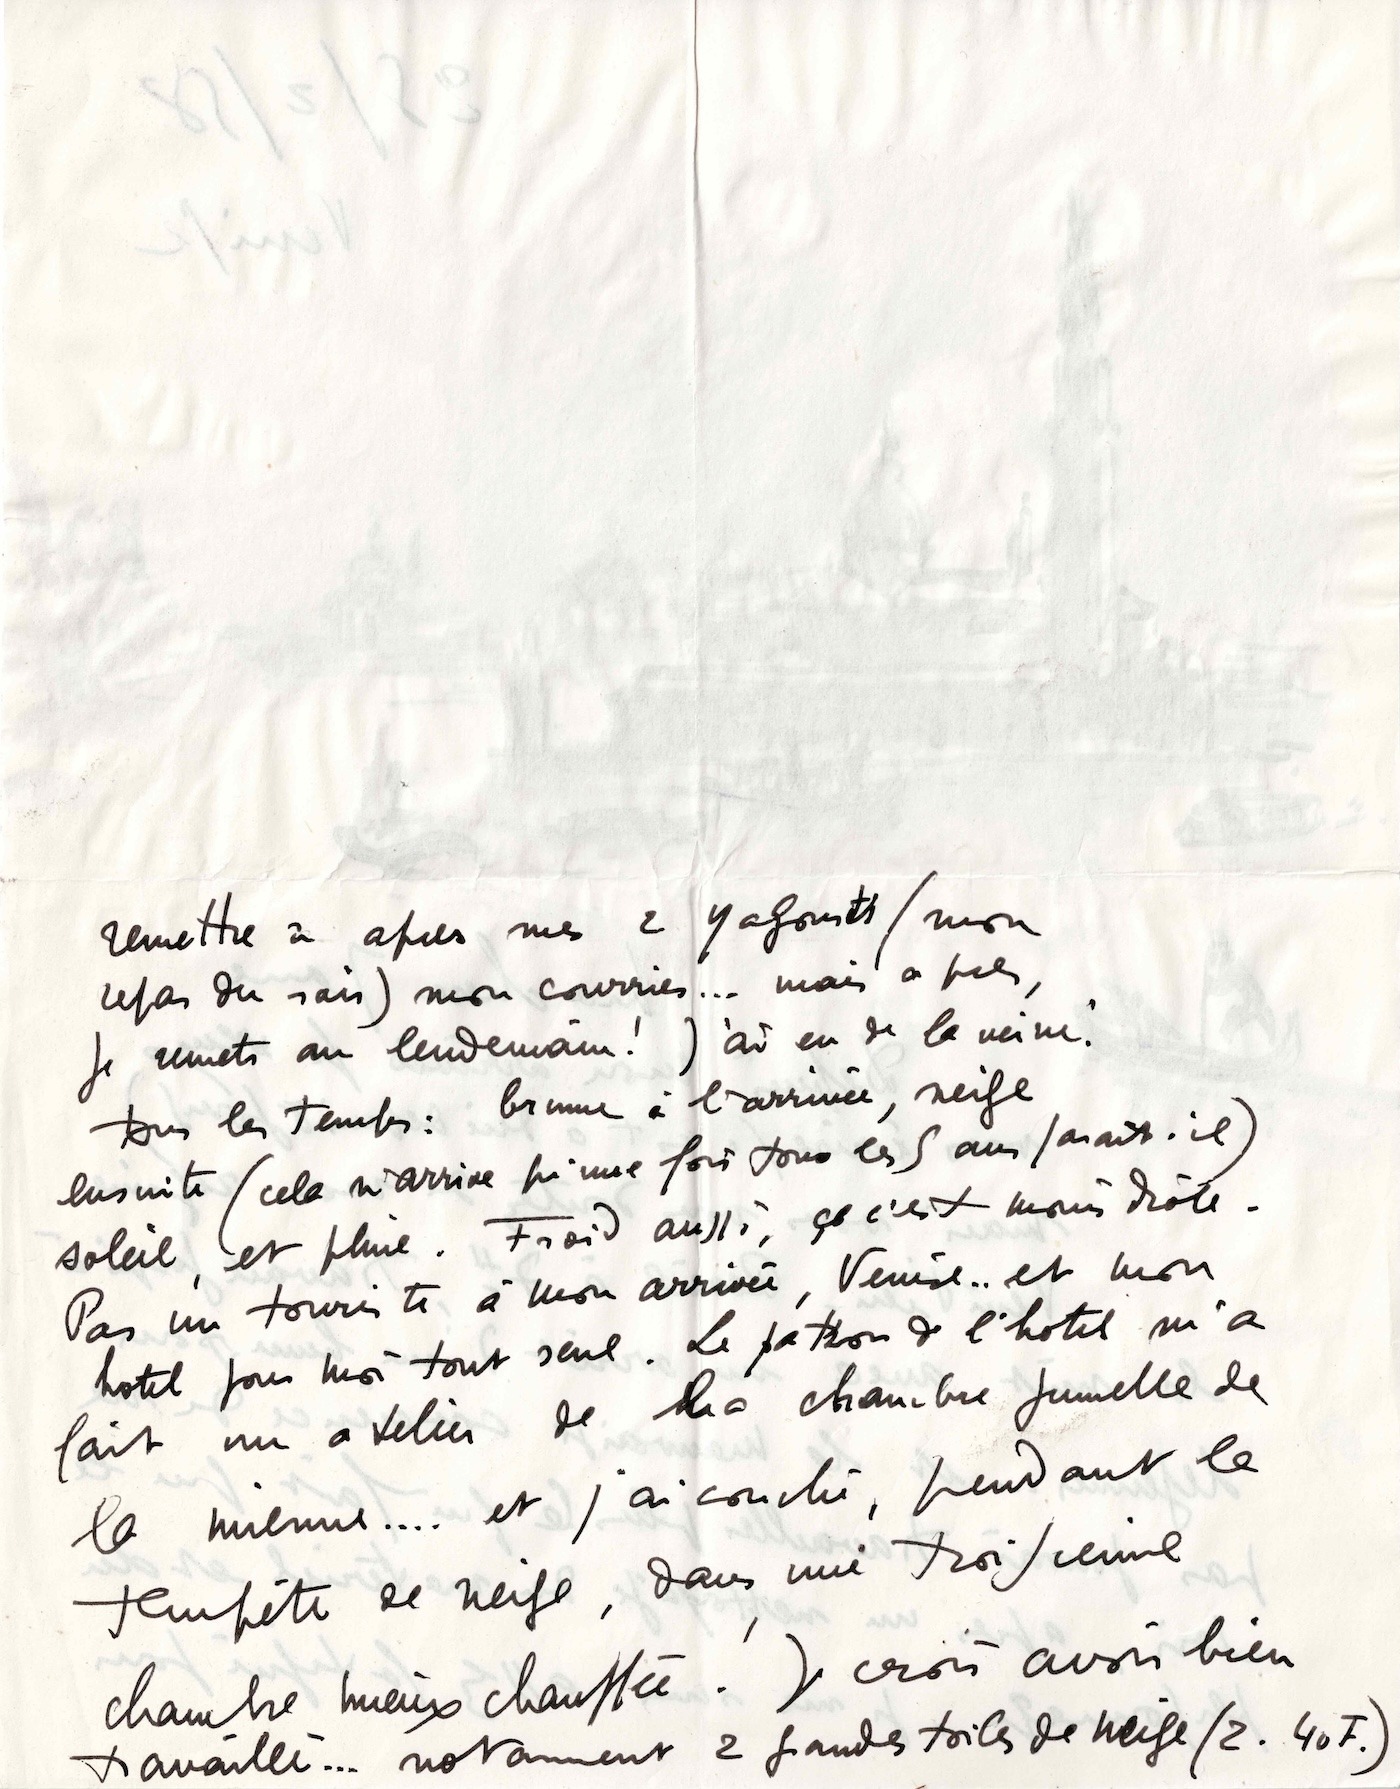 remettre à après mes 2 yagourts (mon
repas du soir) mon courrier... mais après,
je remets au lendemain! J'ai eu de la veine:
tous les temps: brume à l'arrivée, neige
ensuite (cela n'arrive qu'une fois tous les 5 ans paraît-il)
soleil, et pluie. Froid aussi, ça c'est moins drôle.
Pas un touriste à mon arrivée, Venise.. et mon
hotel pour moi tout seul. Le patron de l'hotel m'a
fait un atelier de la chambre jumelle de
la mienne.... et j'ai couché, pendant la
tempête de neige, dans une troisième
chambre mieux chauffée! Je crois avoir bien
travaillé... notamment 2 grandes toiles de neige (2. 40 F.)